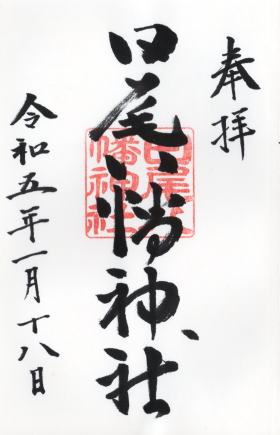 奉拝
日尾八幡神社
令和五年一月十八日
日尾八
幡神社